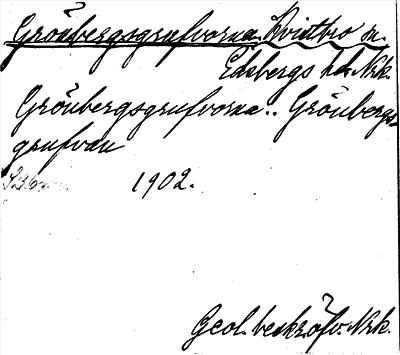 Grönbergsgrufvorna Kvistbro sn.
Edsbergs hd. Nrk.
Grönbergsgrufvorna.. Grönbergs-
grufvan
1902.
Geol. beskr. öfv. Nrk.